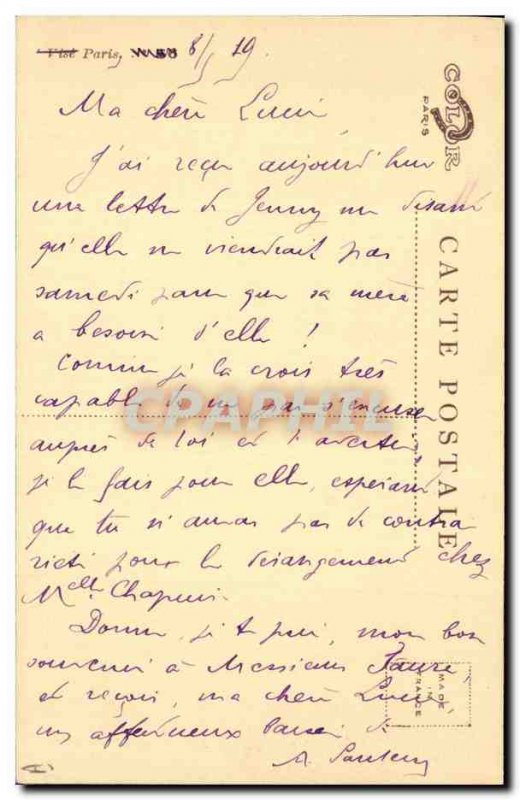 Visé Paris, 8/5 19.
COLOR
PARIS
CARTE POSTALE
Ma chère Lucie,
J'ai reçu aujourd'hui
une lettre de Jenny me disant
qu'elle ne viendrait pas
samedi parce que sa mère
a besoin d'elle !
Comme je la crois très
capable de ne pas s'excuser
auprès de toi et t'avertir,
je le fais pour elle, espérant
que tu n'auras pas de contra
riété pour le dérangement chez
Melle Chapuis.
Donne, je te prie, mon bon
souvenir à Messieurs Fauré,
et reçois, ma chère Lucie,
un affectueux baiser de
A.
MADE
IN
FRANCE
CPAPHIL